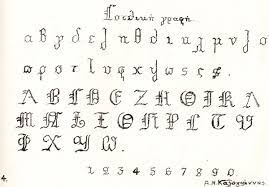 Γοτθική γραφή
α β γ δ ε ζ η θ ι κ λ μ ν ξ ο
π ρ σ τ υ φ χ ψ ω ς
Α Β Γ Δ Ε Ζ Η Θ Ι Κ
Λ Μ Ν Ξ Ο Π Ρ Σ Τ Υ
Φ Χ Ψ Ω
1 2 3 4 5 6 7 8 9 0
4.